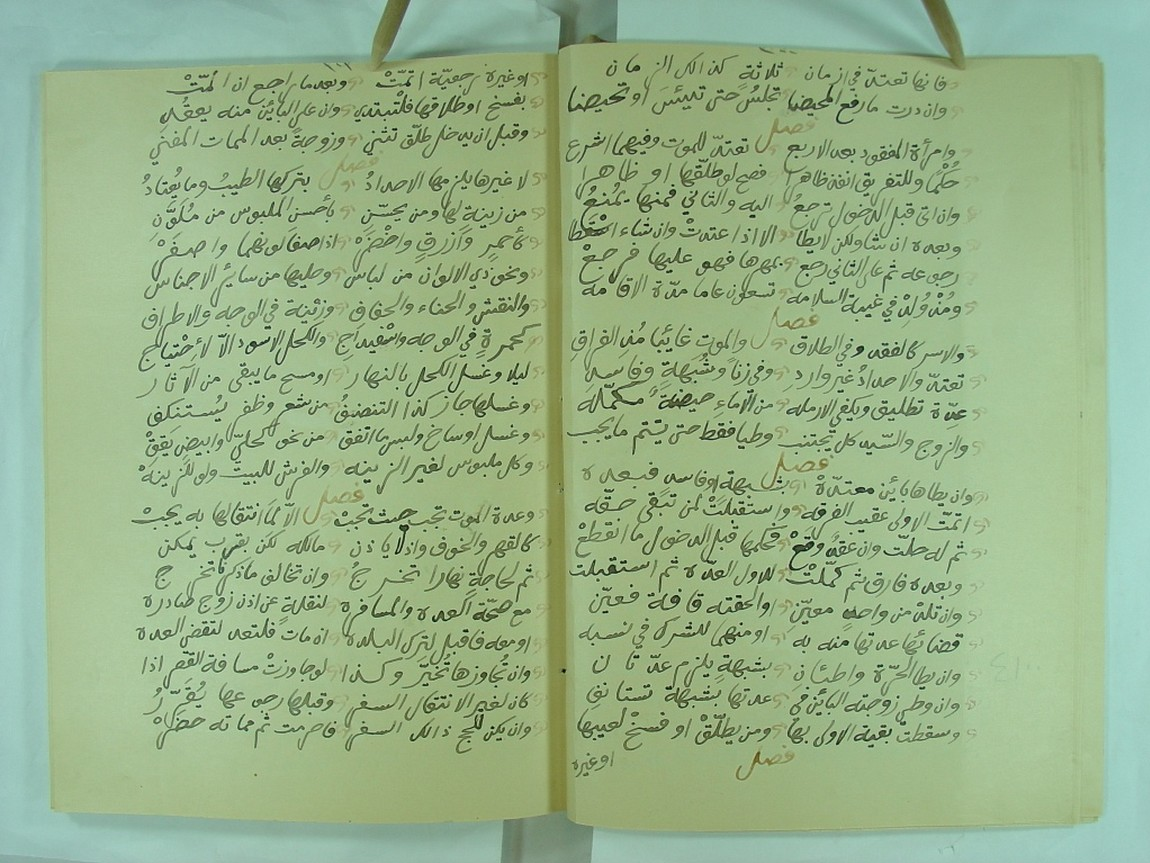 فانها تعتد في ازمان ثلاثة كذا لكل الزمان
وان درت مارفع المحيضا تجلس حتى تيئس او تحيضا
فصل
وامرأة المفقود بعد الاربع تعتد للموت وفيهما اشرع
حكما وللتفريق انفذ ظاهرا فصح لو طلقها او ظاهرا
وان اتى قبل الدخول ترجع اليه والثاني فمنها يمنع
وبعده ان شا ولكن لا يطا الا اذا اعتدت وان شاء
رجوعه ثم على الثاني رجع بمهرها فهو عليها فرجع
ومذ ولد في غيبة السلامه تسعون عاما مدة الاقامه
فصل
والاسر كالفقد وفي الطلاق والموت غايبا مذ الفراق
تعتد والاحداد غير وارد وفي زنا وشبهة وفاسد
عدة تطليق ويكفي الارمله من الاماء حيضة مكمله
والزوج والسيد كل يجتنب وطيا فقط حتى يتم ما يجب
فصل
وان يطاها بائن معتده بشبهة او فاسد فبعده
اتمت الاولى عقيب الفرقه واستقبلت لمن تبقى حقه
ثم له حلت وان عقد وقع فحكمها قبل الدخول ما انقطع
وبعده فارق ثم كملت للاول العدة ثم استقبلت
وان تلد من واحد معين او الحقته قافة فعين
قضائها عدتها منه به او منهما للشرك في نسبه
وان يطا الحرة واطئان بشبهة يلزم عدتان
وان وطى زوجته البائن في عدتها بشبهة تستانف
وسقطت بقية الاولى بها ومن يطلق او فسخ لعيبها
فصل
اوغيره
اوغيره رجعية اتمت وبعد ما راجع ان المت
بفسخ او طلاقها فلتبتدي وان على البائن منه يعقد
وقبل ان يدخل طلق تنثني وزوجة بعد الممات المفني
فصل
لا غيرها يلزمها الاحداد بتركها الطيب وما يعتاد
من زينة لها ومن يحسن باحسن الملبوس من ملون
كاحمر وازرق واخضر اذا صفا لونهما واصفر
ونحو ذي الالوان من لباس وحليها من ساير الاجناس
والنقش والحناء والحفاف وزينة في الوجه والاطراف
كحمرة في الوجه واسفيداج والكحل الاسود الا لاحتياج
ليلا وغسل الكحل بالنهار او مسح ما يبقى من الآثار
وغسلها جاز كذا التنضيف من شعر وظفر يستنكف
وغسل اوساخ ولبس ما اتفق من نحو كحلي وابيض يقق
وكل ملبوس لغير الزينه والفرش للبيت ولو للزينه
فصل
وعدة الموت تجب حيث تجب الا لما انتقالها به يجب
كالقهر والخوف واذ لا ياذن مالكه لكن بقرب يمكن
ثم لحاجة نهارا تخرج وان تخالف ما ذكرنا تخرج
مع صحة العدة والمسافره لنقلة عن اذن زوج صادره
او معه فاقبل لترك البلده ان مات فلتعد لتقض العده
وان تجاوزها تخير وكذا لو جاوزت مسافة القصر اذا
كان لغير الانتقال السفر وقبلها رجوعها يقرر
وان يكن للحج ذالك السفر فاحرمت ثم مماته حضر